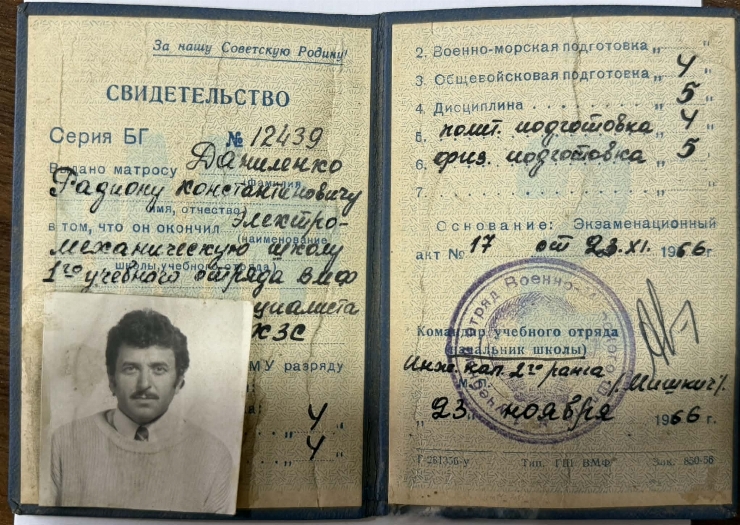 За нашу Советскую Родину!
СВИДЕТЕЛЬСТВО
Серия БГ № 12439
Выдано матросу Даниленко
(фамилия,
Радиону Константиновичу
имя, отчество)
в том, что он окончил Электро-
(наименование
механическую школу
школы, учебного отряда)
1го учебного отряда ВМФ
циалиста
ХЗС
МУ разряду
„ 4 „
„ 4 „
2. Военно-морская подготовка „ „
3. Общевойсковая подготовка „ 4 „
4. Дисциплина . . . . . . . . „ 5 „
5. полит. подготовка „ 4 „
6. физ. подготовка „ 5 „
7. . . . . . . . . „
Основание: Экзаменационный
акт № 17 от 23.XI. 1966 г.
Командир учебного отряда
(начальник школы)
Инж. кап. 2го ранга /. Мишкич/.
М.
„ 23 „ ноября 1966 г.
Г-261356-у Тип. ГПГ ВМФ Зак. 850-56